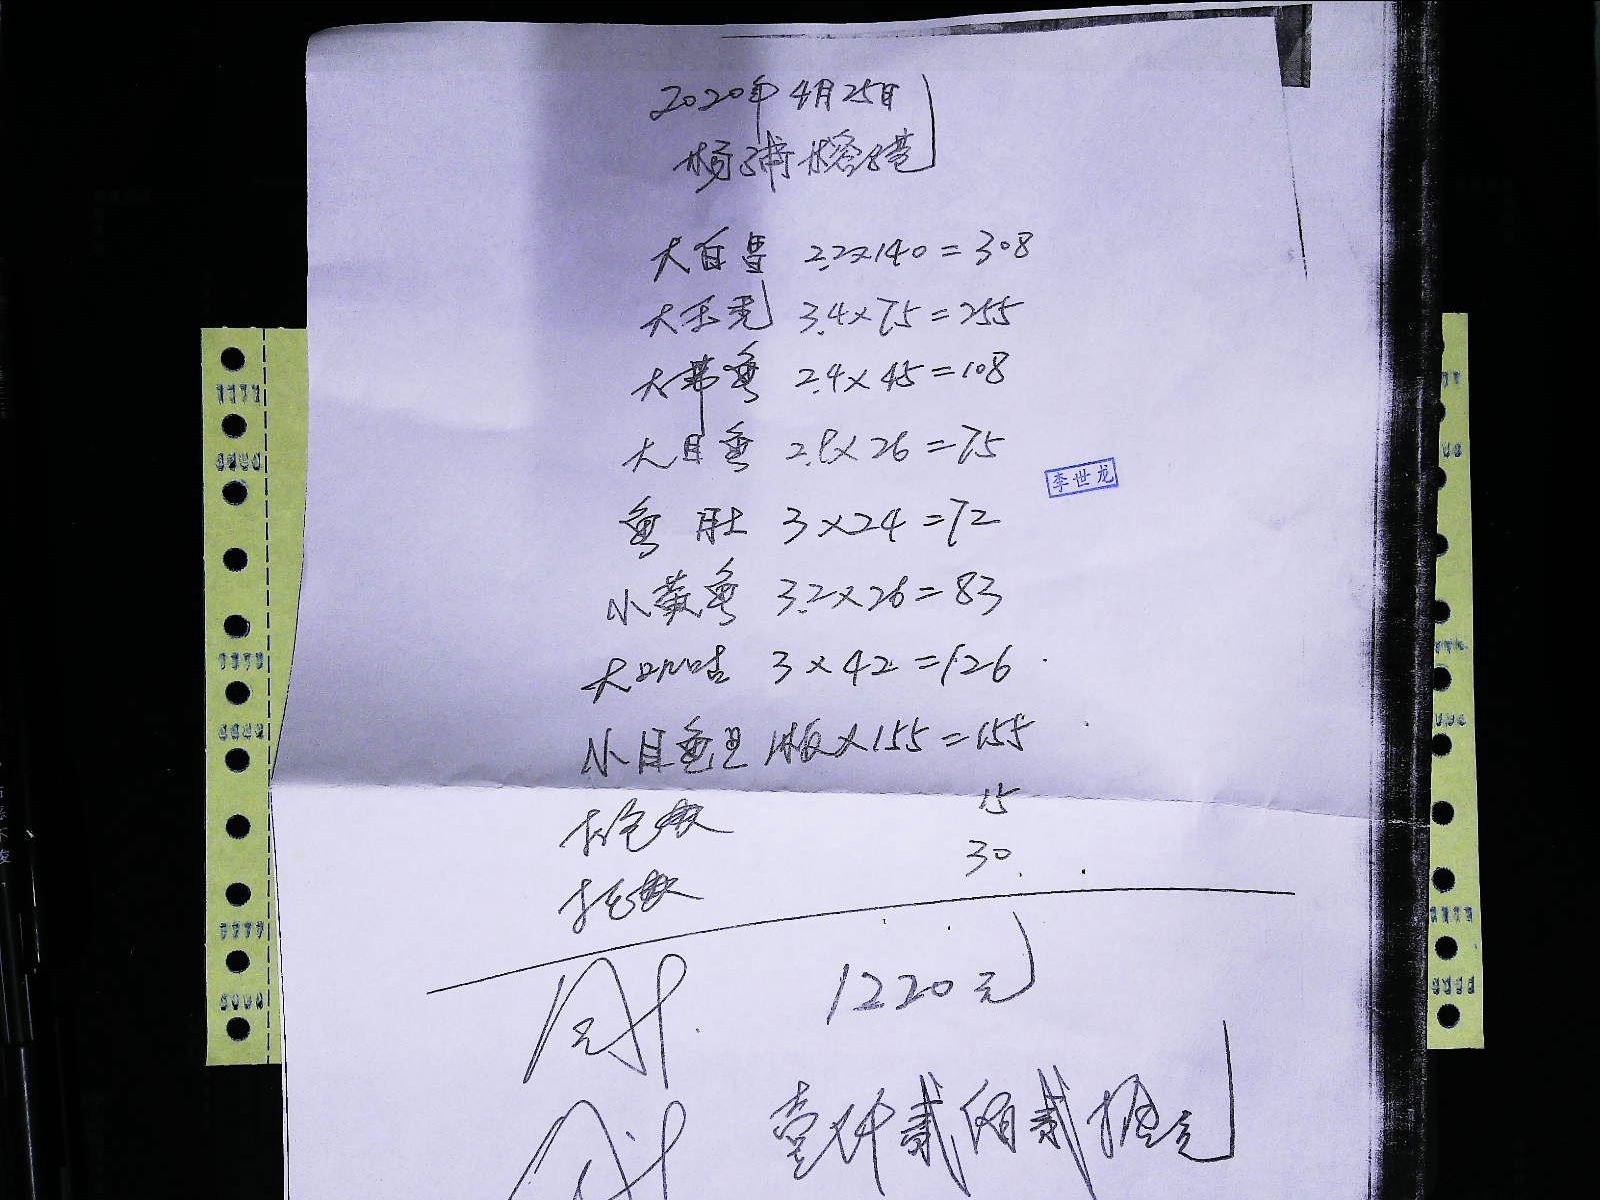 2020年4月25日
杨浦榕港
大白鲳 2.2×140=308
大玉秃 3.4×75=255
大带鱼 2.4×45=108
大目鱼 2.9×26=75
鱼肚 3×24=72
小黄鱼 3.2×26=83
大叽咕 3×42=126
小目鱼蛋 1板×155=155
15
30
合计 1220元
合计 壹仟贰佰贰拾元
李世龙